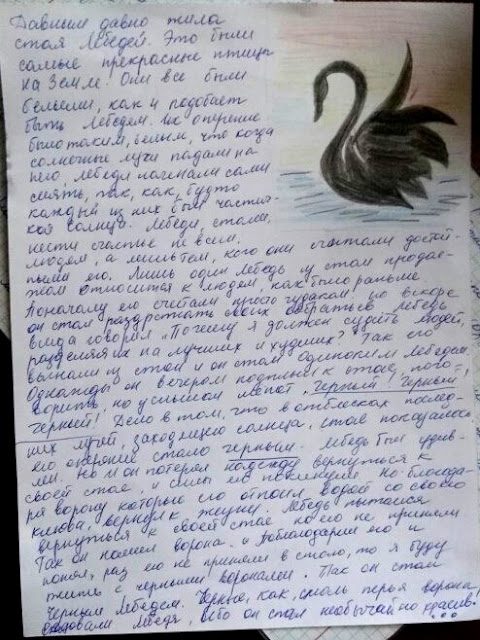 Давным давно жила
стая Лебедей. Это были
самые прекрасные птицы
на Земле. Они все были
белыми, как и подобает
быть Лебедем. Их оперение
было таким белым, что когда
солнечные лучи падали на
него, лебеди начинали сами
сиять, так, как будто
каждый из них был частич-
кой солнца. Лебеди стали
нести счастье не всем,
людям, а лишь тем, кого они считали достой-
ными его. Лишь один Лебедь из стаи продол-
жал относиться к людям, как было раньше.
Поначалу его считали просто чудаком, но вскоре
он стал раздражать своих собратьев. Лебедь
всегда говорил „Почему я должен судить людей,
разделяя их на лучших и худших?" Так его
выгнали из стаи и он стал Одиноким Лебедем.
Однажды он вечером подплыл к стае, пого-
ворить, но услышал шепот „Черный! Черный!
Черный! Дело в том, что в отблесках послед-
них лучей, заходящего солнца, стае показалось
его оперение стало черным. Лебедь был удив-
лен. Но и он потерял надежду вернуться к
своей стае, и силы его покинули. Но благода-
ря ворону который его отпоил водой со своего
клюва, вернул к жизни. Лебедь пытался
вернуться к своей стае но его не приняли
Так он нашел ворона и поблагодарил его и
понял, раз его не приняли в стаю, то я буду
жить с черными воронами. Так он стал
Черным Лебедем. Черные, как смоль перья ворона
Лебедя, ибо он стал необычайно красив...